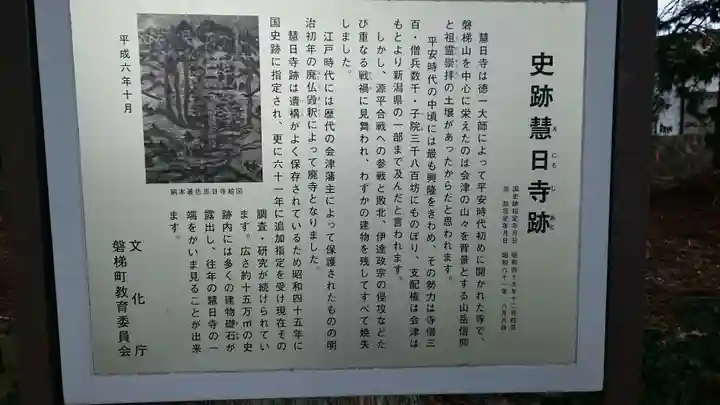 史跡慧日寺跡
えにちじあと
国史跡指定年月日 昭和四十五年十二月四日
追加指定年月日 昭和六十一年 八月六日
慧日寺は徳一大師によって平安時代初めに開かれた寺で、
磐梯山を中心に栄えたのは会津の山々を背景とする山岳信仰
と祖霊崇拝の土壌があったからだと思われます。
平安時代の中頃には最も興隆をきわめ、その勢力は寺僧三
百・僧兵数千・子院三千八百坊にものぼり、支配権は会津は
もとより新潟県の一部まで及んだと言われます。
しかし、源平合戦への参戦と敗北、伊達政宗の侵攻などた
び重なる戦禍に見舞われ、わずかの建物を残してすべて焼失
しました。
江戸時代には歴代の会津藩主によって保護されたものの明
治初年の廃仏毀釈によって廃寺となりました。
慧日寺跡は遺構がよく保存されているため昭和四十五年に
国史跡に指定され、更に六十一年に追加指定を受け現在その
調査・研究が続けられてい
ます。広さ約十五万㎡の史
跡内には多くの建物礎石が
露出し、往年の慧日寺の一
端をかいま見ることが出来
ます。
絹本著色恵日寺絵図
平成六年十月
文化庁
磐梯町教育委員会